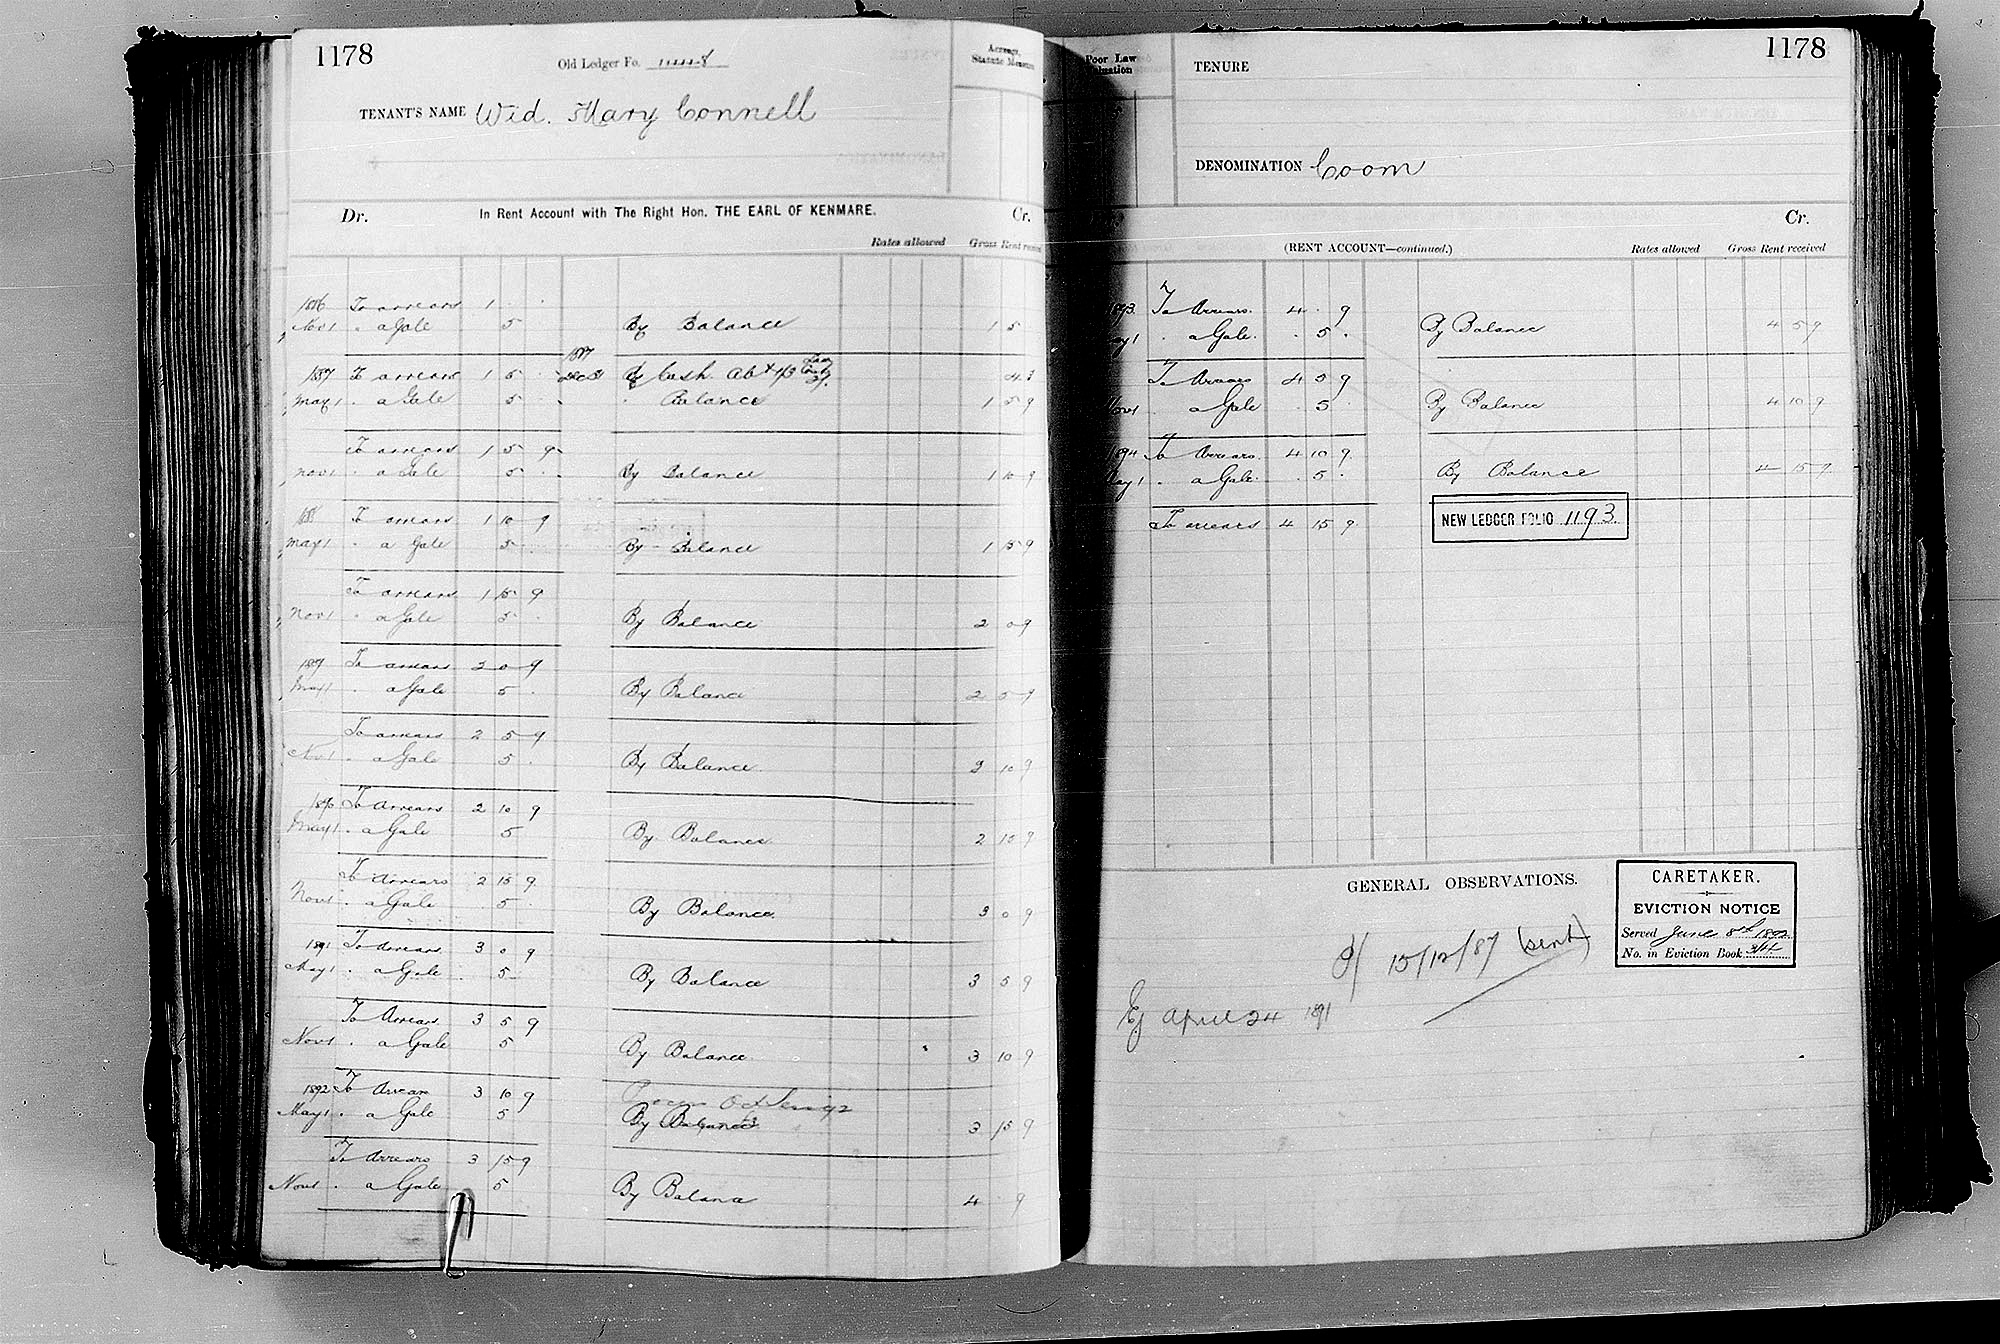 1178
Old Ledger Fo.
TENANT'S NAME Wid. Mary Connell
Acreage, Statute Measure
Dr. In Rent Account with The Right Hon. THE EARL OF KENMARE. Cr.
Rates allowed Gross Rent received
1886 To arrears 1 . .
Nov 1 . a Gale 5 By Balance 1 5
1887
1887 To arrears 1 5 . Dec 31 By Cash
May 1 . a Gale 5 . . Balance 1 5 9
To arrears 1 5 9
Nov 1 . a Gale 5 . By Balance 1 10 9
To arrears 1 10 9
May 1 . a Gale 5 By Balance 1 15 9
To arrears 1 15 9
Nov 1 . a Gale 5 . By Balance 2 0 9
To arrears 2 0 9
May 1 . a Gale 5 . By Balance 2 5 9
To arrears 2 5 9
Nov 1 . a Gale 5 . By Balance 2 10 9
To Arrears 2 10 9
May 1 . a Gale 5 By Balance 2 15 9
To Arrears 2 15 9
Nov 1 . a Gale 5 . By Balance 3 0 9
1891 To Arrears 3 0 9
May 1 . a Gale 5 By Balance 3 5 9
To Arrears 3 5 9
Nov 1 . a Gale 5 By Balance 3 10 9
1892 To Arrears 3 10 9
May 1 . a Gale 5 By Balance 3 15 9
To Arrears 3 15 9
Nov 1 . a Gale 5 By Balance 4 . 9
1178
Poor Law
TENURE
DENOMINATION Coom
Cr.
(RENT ACCOUNT—continued.) Rates allowed Gross Rent received
1893 To Arrears. 4 . 9
. a Gale . 5 . By Balance 4 5 9
To Arrears 4 5 9
. a Gale . 5 . By Balance 4 10 9
1894 To Arrears. 4 10 9
. a Gale . 5 . By Balance 4 15 9
To arrears 4 15 9 NEW LEDGER FOLIO 1193.
GENERAL OBSERVATIONS.
CARETAKER.
EVICTION NOTICE
Served June 8th 1892
No. in Eviction Book
15/12/87 (sent)
Ej April 24 1891